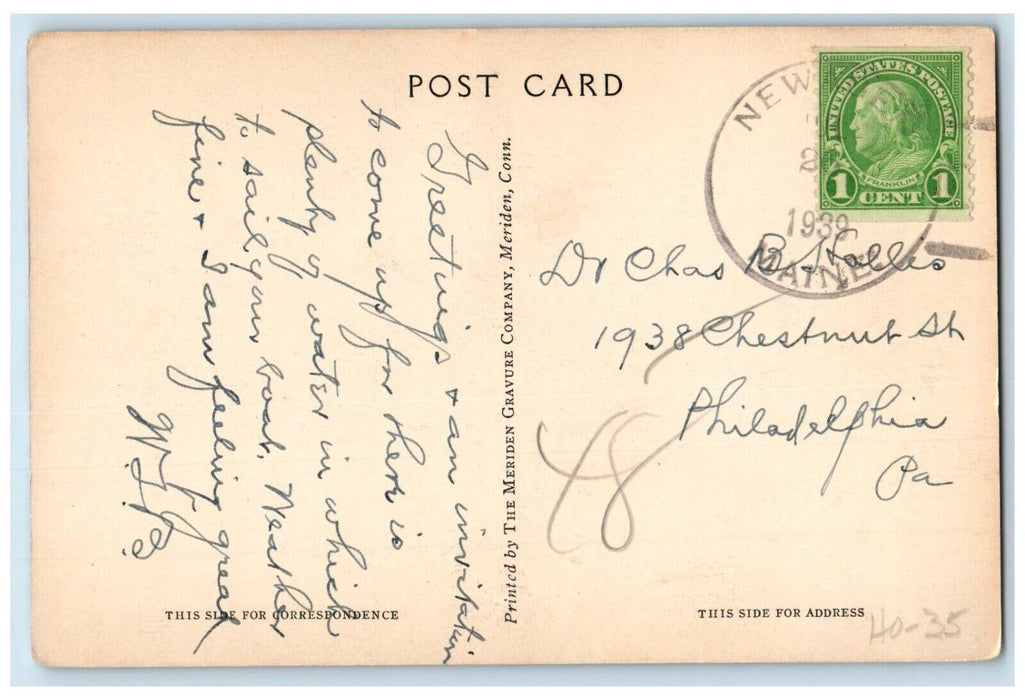 POST CARD
Greetings + an invitation
to come up for there is
plenty of water in which
to sail your boat. Weather
fine + I am feeling great
THIS SIDE FOR CORRESPONDENCE
Printed by THE MERIDEN GRAVURE COMPANY, Meriden, Conn.
NEW
2
1939
MAINE
UNITED STATES POSTAGE
FRANKLIN
1 CENT 1
Dr Chas B. Hollis
1938 Chestnut St
Philadelphia
Pa
48
THIS SIDE FOR ADDRESS
HO-35